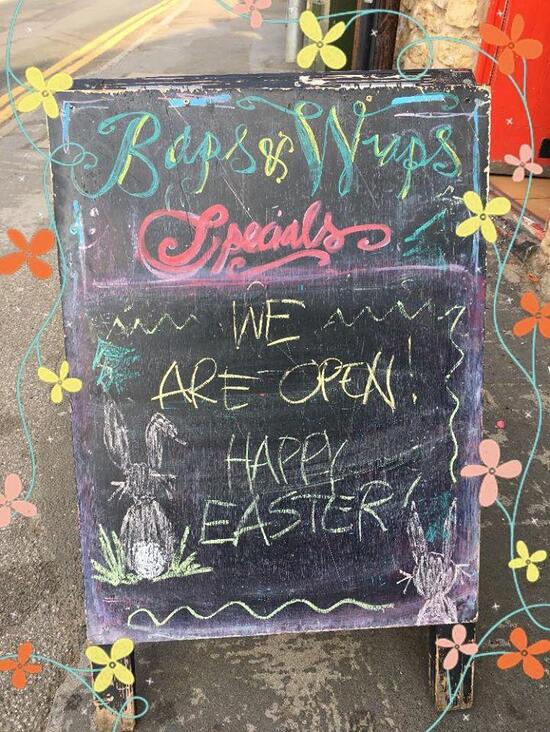 Baps & Wraps
Specials
WE
ARE OPEN!
HAPPY
EASTER!